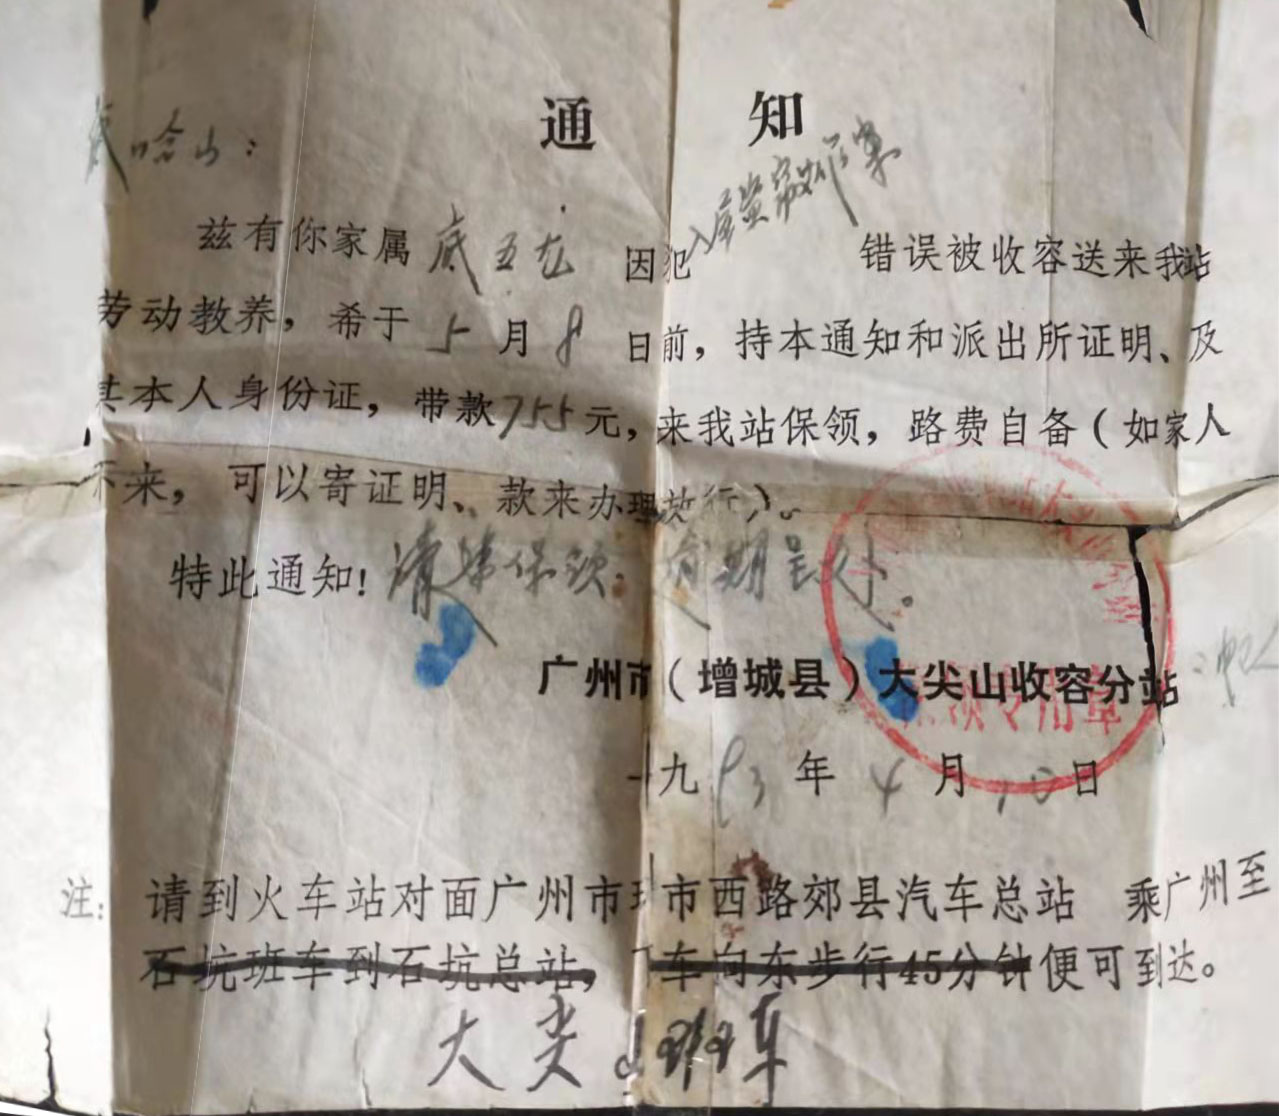 通 知
哈山：
入屋盗窃作案
兹有你家属 底五龙 因犯 错误被收容送来我站
劳动教养，希于 5 月 8 日前，持本通知和派出所证明、及
其本人身份证，带款755元，来我站保领，路费自备（如家人
不来，可以寄证明、款来办理放行）。
特此通知！请来保领。逾期另处。
广州市（增城县）大尖山收容分站
领专用章
一九93年4月10日
注：请到火车站对面广州市环市西路郊县汽车总站 乘广州至
石坑班车到石坑总站，下车向东步行45分钟便可到达。
大尖山班车